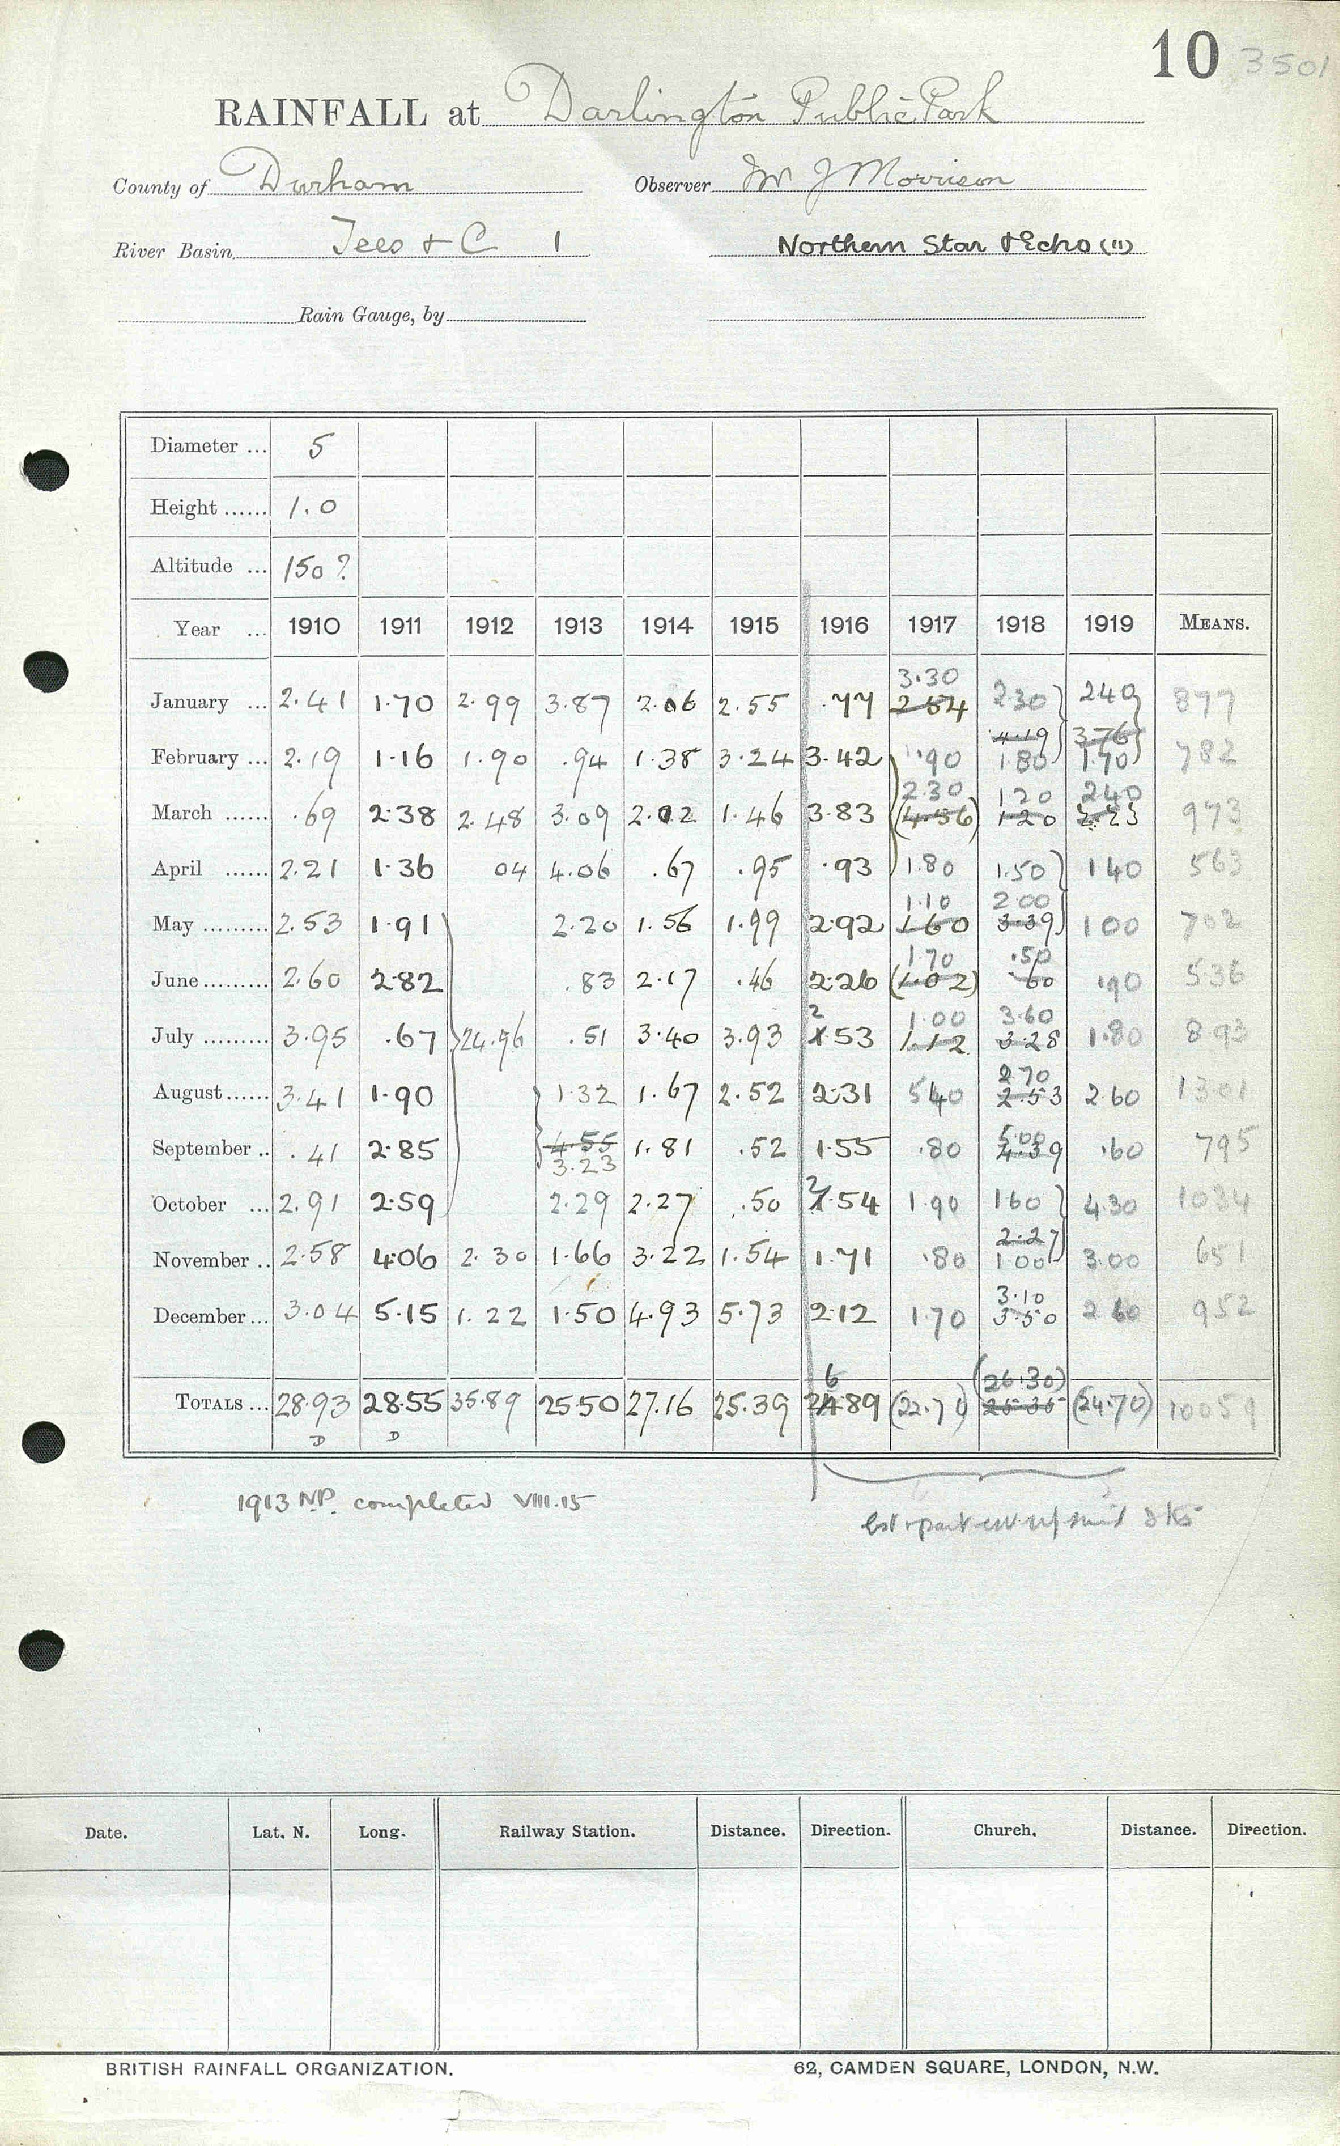 10 3501
RAINFALL at Darlington Public Park
County of Durham Observer Mr J Morrison
River Basin Tees & C 1 Northern Star & Echo (11)
Rain Gauge, by
Diameter ... 5
Height ...... 1.0
Altitude ... 150?
Year ... 1910 1911 1912 1913 1914 1915 1916 1917 1918 1919 MEANS.
3.30
January ... 2.41 1.70 2.99 3.87 2.06 2.55 .77 2.84 230 240 877
4.19 3.76
February ... 2.19 1.16 1.90 .94 1.38 3.24 3.42 .90 1.80 1.70 782
2.30 120 240
March ...... .69 2.38 2.48 3.09 2.02 1.46 3.83 (4.56) 1.20 2.23 973
April ...... 2.21 1.36 04 4.06 .67 .95 .93 1.80 1.50 140 563
1.10 200
May ......... 2.53 1.91 2.20 1.56 1.99 2.92 1.60 3.39 100 702
170 .50
June ......... 2.60 2.82 .83 2.17 .46 2.26 (1.02) .60 .90 536
2 1.00 3.60
July ......... 3.95 .67 24.96 .51 3.40 3.93 1.53 1.12 3.28 1.80 893
2.70
August ...... 3.41 1.90 1.32 1.67 2.52 2.31 540 2.53 260 1301
5.00
September .. .41 2.85 4.55 1.81 .52 1.55 .80 4.39 .60 795
3.23
2
October ... 2.91 2.59 2.29 2.27 .50 1.54 1.90 160 4.30 1034
2.27
November .. 2.58 4.06 2.30 1.66 3.22 1.54 1.71 .80 1.00 3.00 651
3.10
December ... 3.04 5.15 1.22 1.50 4.93 5.73 2.12 1.70 3.50 260 952
6 (26.30)
TOTALS ... 28.93 28.55 35.89 25.50 27.16 25.39 24.89 (22.70) (24.70) 10059
D D
1913 N.P. completed VIII.15
Date. Lat. N. Long. Railway Station. Distance. Direction. Church. Distance. Direction.
BRITISH RAINFALL ORGANIZATION. 62, CAMDEN SQUARE, LONDON, N.W.